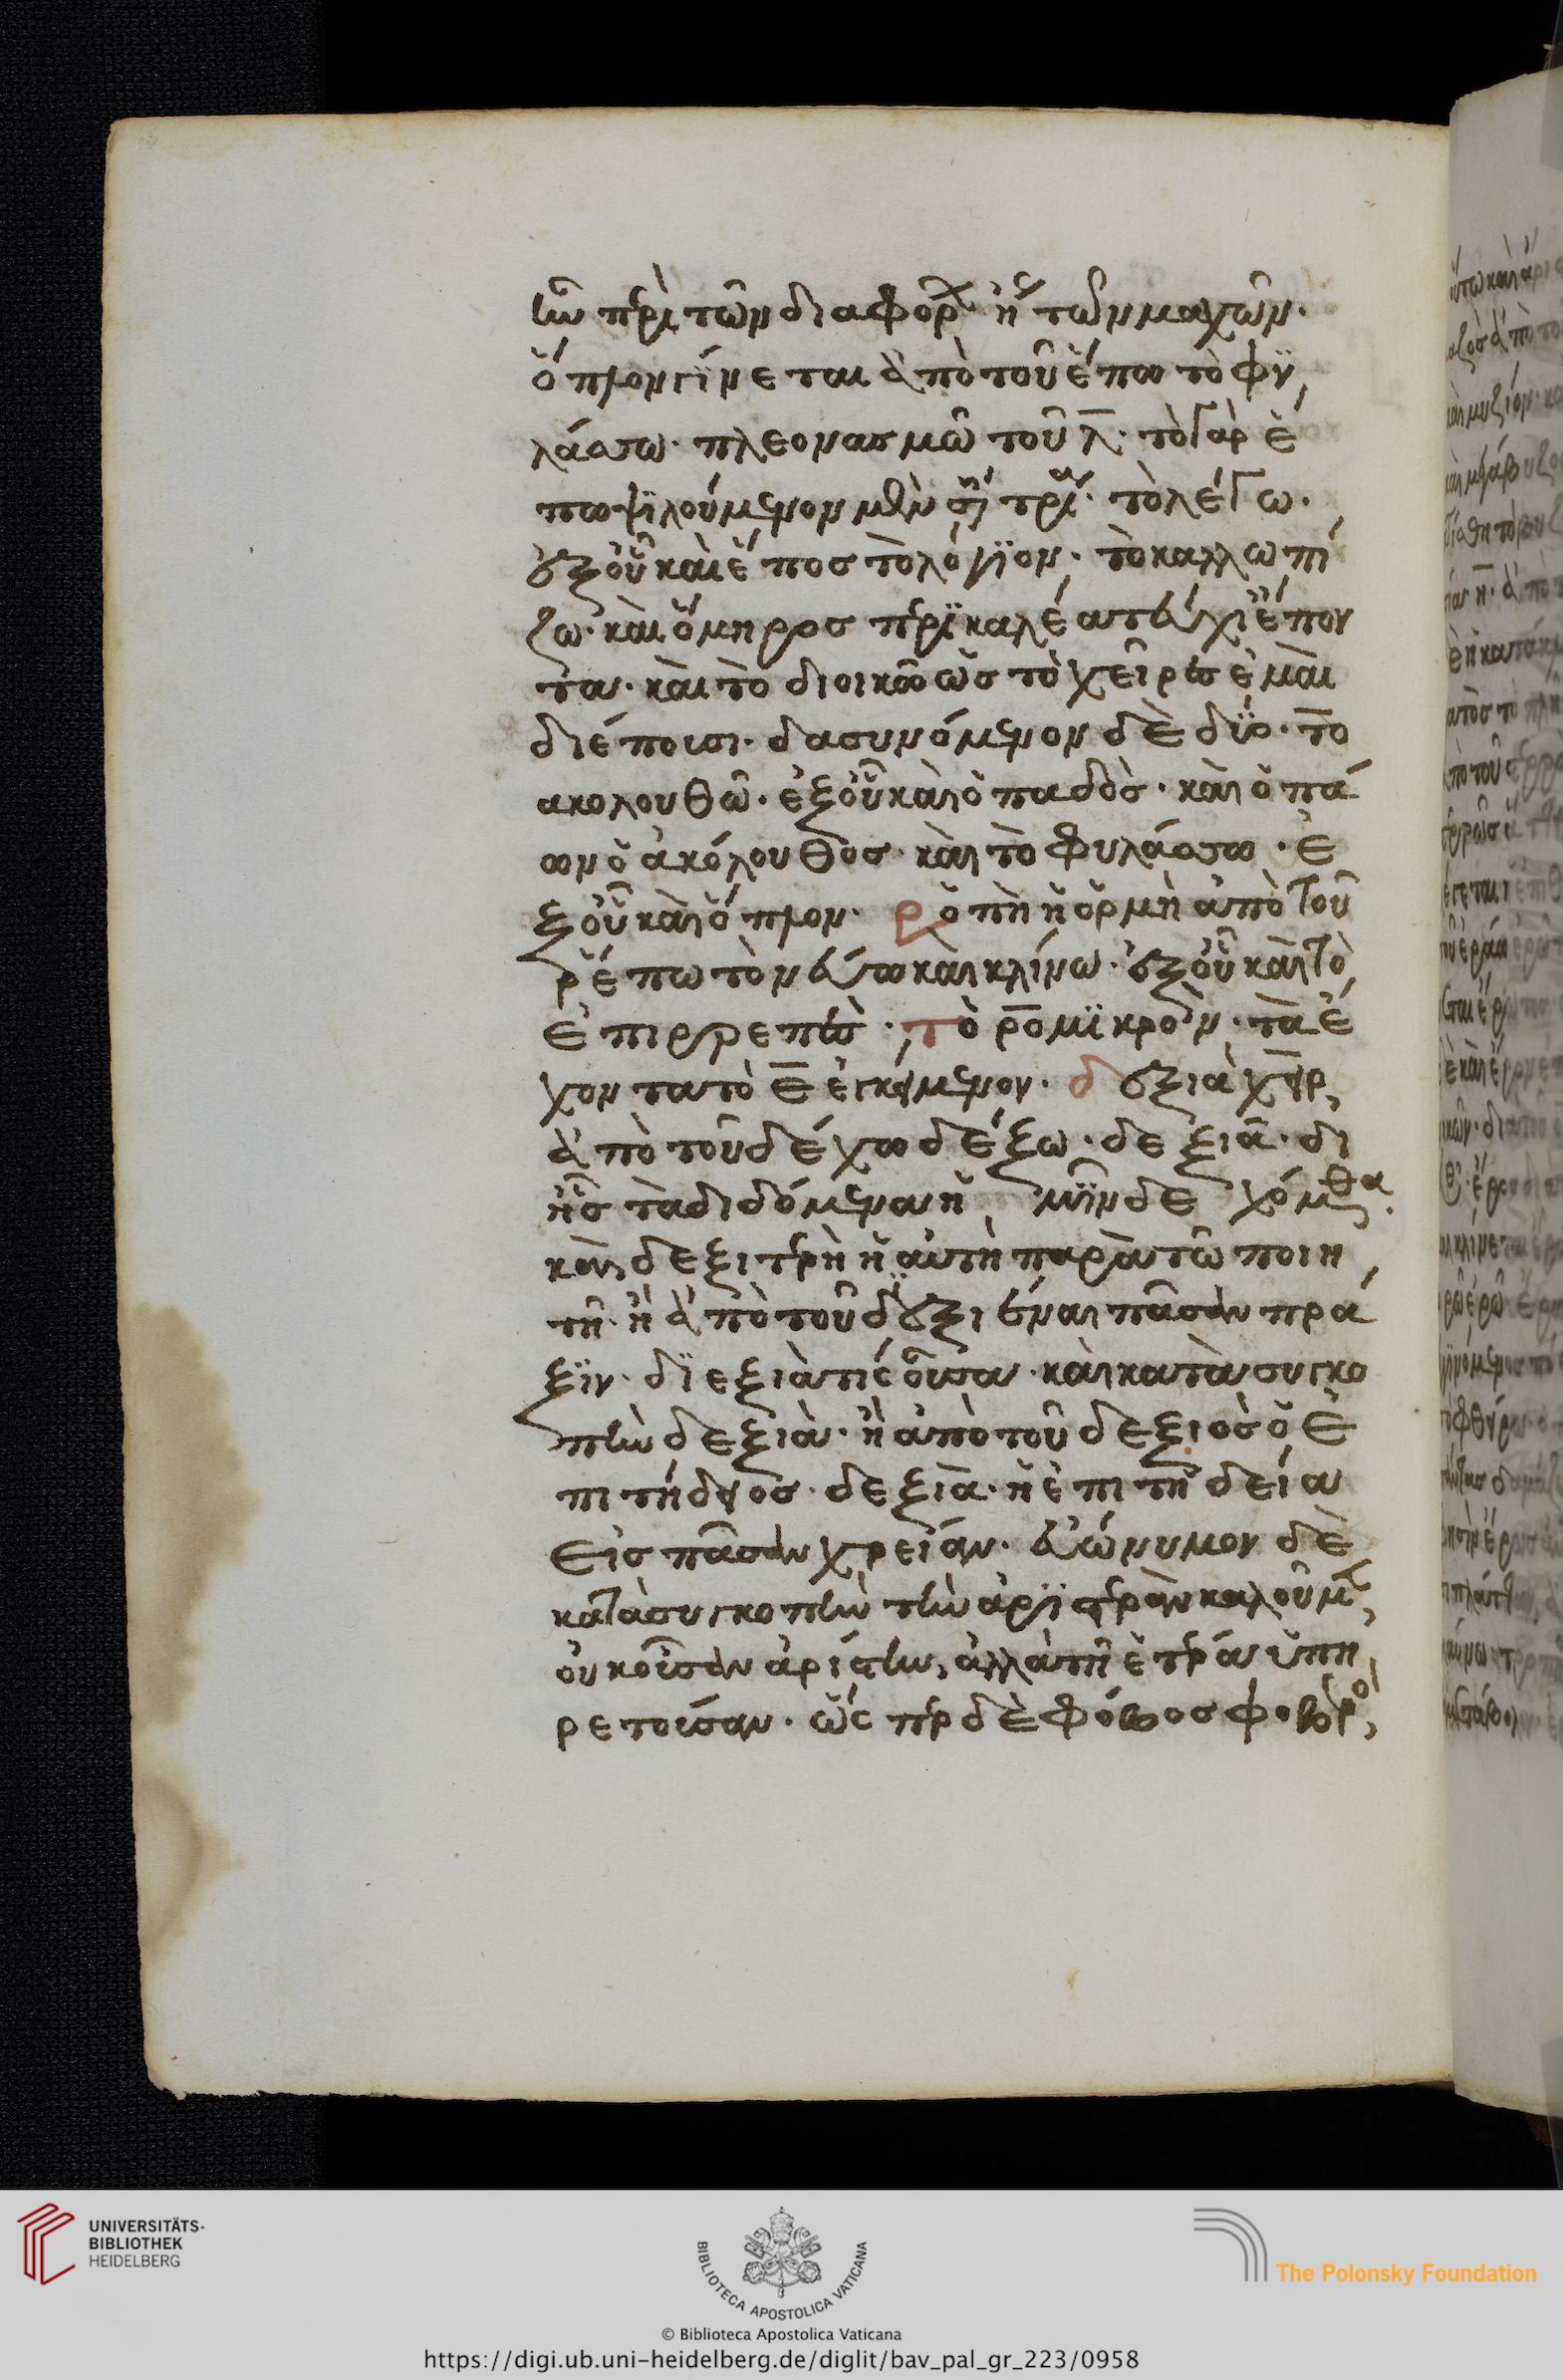 ῶ περὶ τῶν διαφορ ἢ τῶν μαχῶν.
ὅπλον γίνεται ἀπὸ τοῦ ἕπω τὸ φυ
λάσσω. πλεονασμῶ τοῦ λ. τὸ γὰρ ἕ
πω ψιλούμενον μὲν τὸ λέγω.
ἐξ οὗ καὶ ἔπος τὸ λόγϊον. τὸ καλλωπί
ζω. καὶ ὅμηρος περϊκαλέα τεύχἔ ἕπον
τα. καὶ τὸ διοικῶ ὡς τὸ χεῖρες ἐμαὶ
διέποισι. δασυνόμενον δὲ δύο. τὸ
ακολουθῶ. ἐξ οὗ καὶ ὀπαδὸς. καὶ ὀπά
ων ὁ ἀκόλουθος. καὶ τὸ φυλάσσω. ἐ
ξ οὗ καὶ ὅπλον. ροπὴ ἡ ὁρμὴ ἀπὸ τοῦ
ῥέπω τὸ νεύω καὶ κλίνω. ἐξ οὗ καὶ τὸ
ἐπιρρεπὲς. τὸ ρο μϊκρὸν. τὰ ἔ
χοντα τὸ ε ἐικείμενον. δεξιὰ χεὶρ
ἀπὸ τοῦ δέχω δέξω. δεξιὰ. δι
ἧς τὰ διδόμενα ἡμῖν δεχόμεθα.
καὶ δεξιτερὴ ἡ ἀυτὴ παρὰ τῶ ποιη
τῆ. ἢ ἀπὸ τοῦ δϊεξιέναι πᾶσαν πρά
ξιν. δϊεξιὰ τὶς οὖσα. καὶ κατὰ συγκο
πὴν δεξιὰ. ἢ ἀπὸ τοῦ δεξιὸς ὁ ἐ
πιτήδειος. δεξιὰ. ἡ ἐπιτηδεία
εἰς πᾶσαν χρείαν. ἐυώνυμον δὲ
κατὰ συγκοπὴν τὴν ἀρϊστερὰν καλοῦμεν
ὀυκ οὖσαν ἀρίστην, ἀλλὰ τῆ ἑτέρα ὑπη
ρετοῦσαν. ὥσπερ δὲ φόβος φοβερὸς
UNIVERSITÄTS-
BIBLIOTHEK
HEIDELBERG
BIBLIOTECA APOSTOLICA VATICANA
The Polonsky Foundation
© Biblioteca Apostolica Vaticana
https://digi.ub.uni-heidelberg.de/diglit/bav_pal_gr_223/0958